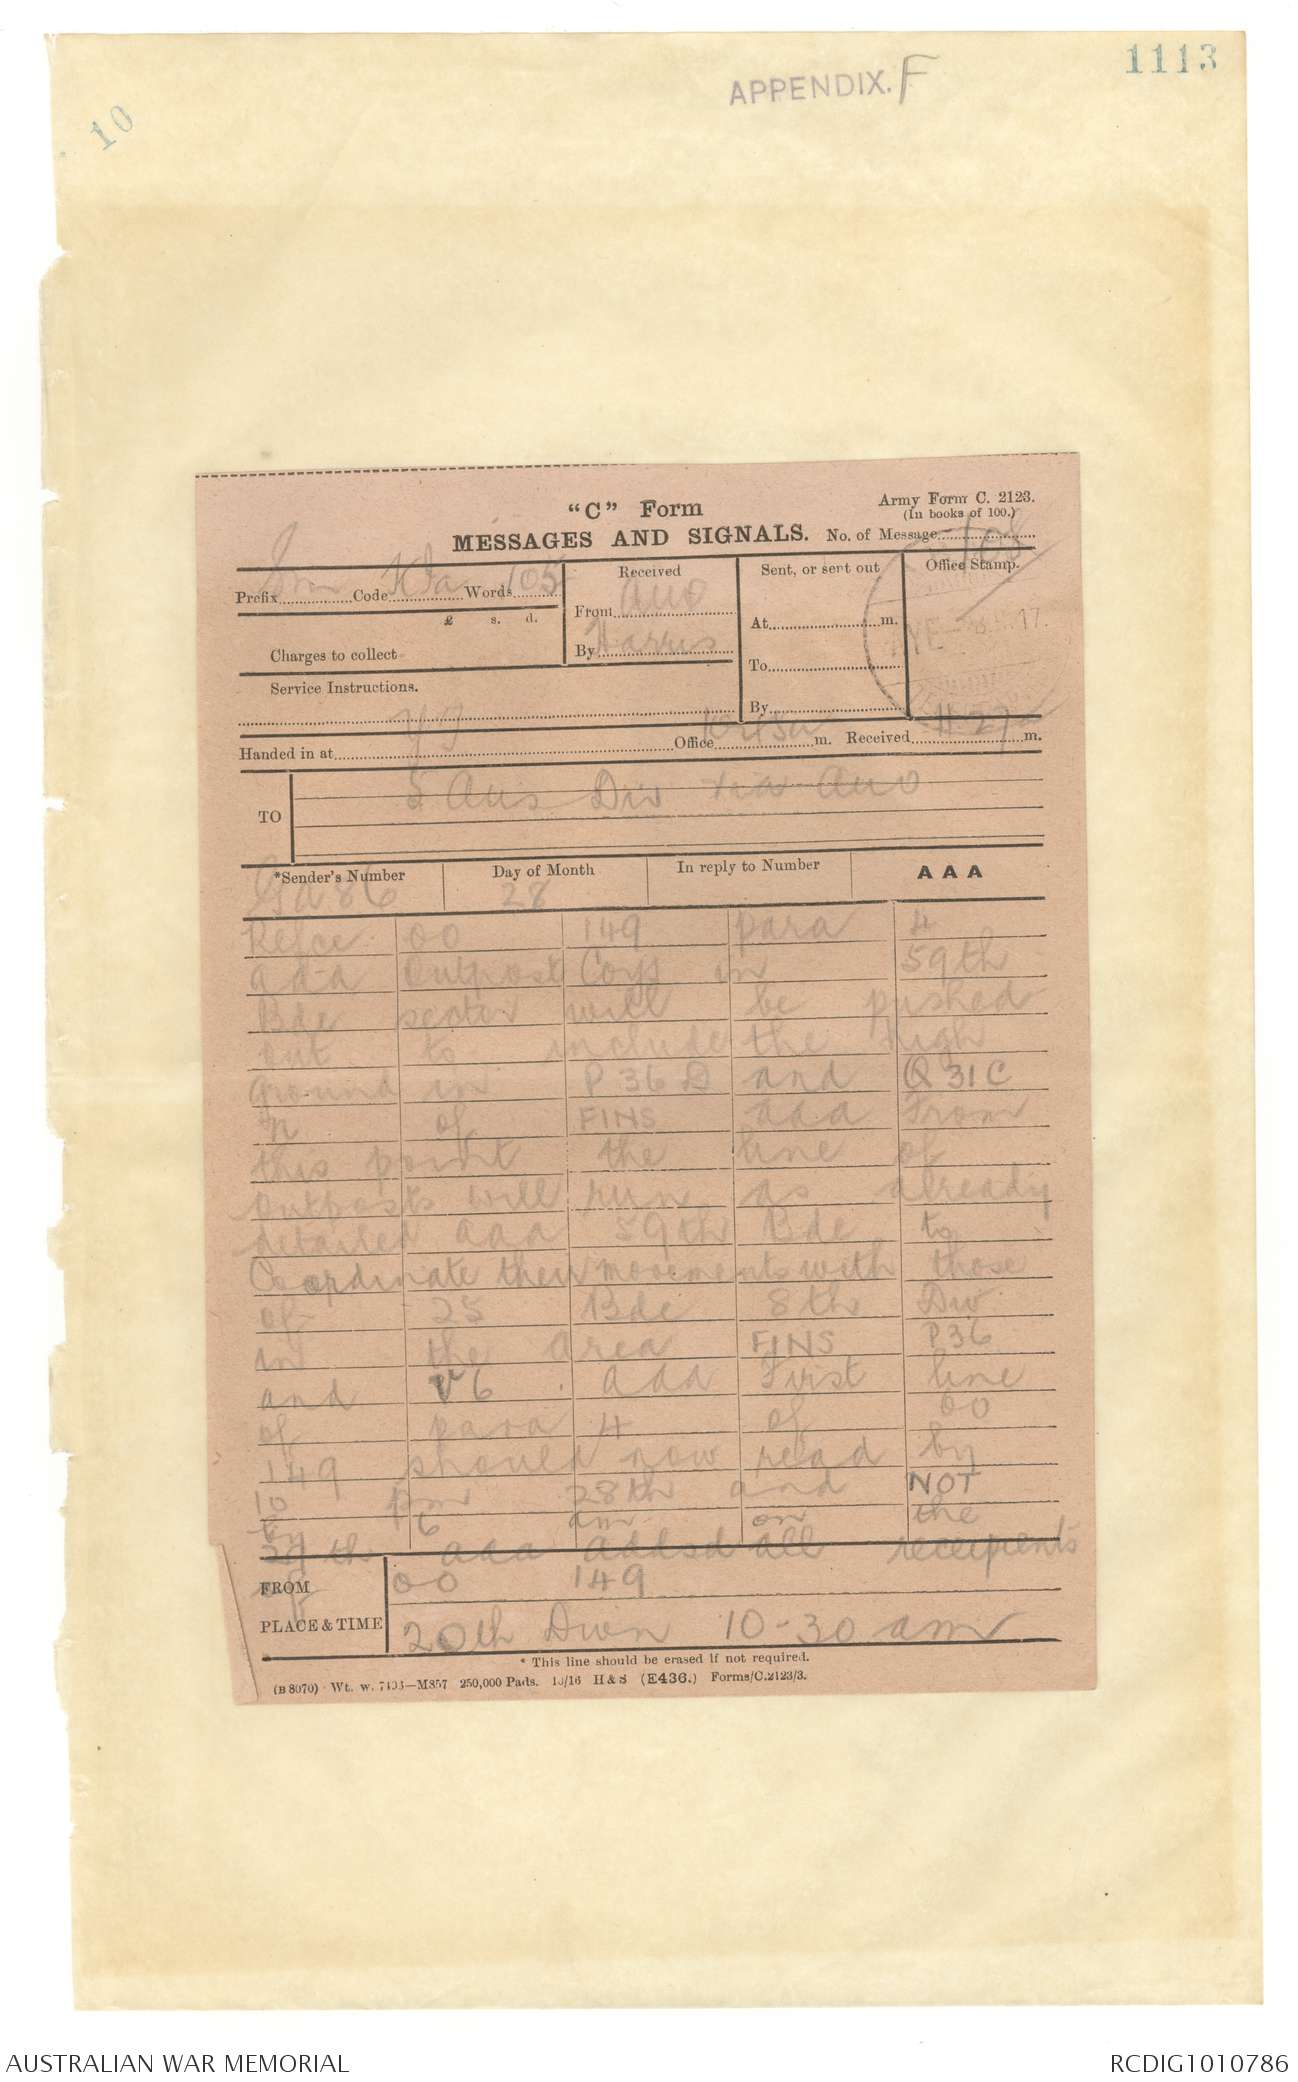 1113
APPENDIX. F
10
"C" Form
Army Form C. 2123.
(In books of 100.)
MESSAGES AND SIGNALS.
No. of Message 108
Prefix Sm Code Words 105
£ s. d.
Charges to collect
Service Instructions.
Received
From Auo
By Harris
Sent, or sent out
At m.
To
By
Office Stamp.
Handed in at YI Office m. Received 11.27 m.
TO
5 Aus Div via Auo
*Sender's Number
Ga 86
Day of Month
28
In reply to Number
AAA
Refce OO 149 para 4
aaa Outpost Corps in 59th
Bde sector will be pushed
out to include the high
ground in P 36 D and Q 31 C
N of FINS aaa From
this point the line of
outposts will run as already
detailed aaa 59th Bde to
Coordinate their movements with those
of 25 Bde 8th Div
in the Area FINS P36
and V6 aaa First line
of para 4 of OO
149 should now read by
10 pm 28th and NOT
by 6 am on the
29th aaa addsd all receipients
of OO 149
FROM
PLACE & TIME
20th Divn 10-30 am
* This line should be erased if not required.
(B 8070) Wt. w. 7403—M857 250,000 Pads. 10/16 H & S (E436.) Forms/C.2123/3.
AUSTRALIAN WAR MEMORIAL
RCDIG1010786